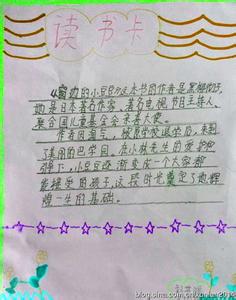 读书卡
《窗边的小豆豆》这本书的作者是黑柳彻子,
她是日本著名作家、著名电视节目主持人、
联合国儿童基金会亲善大使。
作者因淘气,被原学校退学后,来到
了巴学园,在小林先生的爱护和
引导下,小豆豆逐渐变成一个大家都
能接受的孩子,这段时光奠定了她辉
煌一生的基础。
blog.sina.com.cn